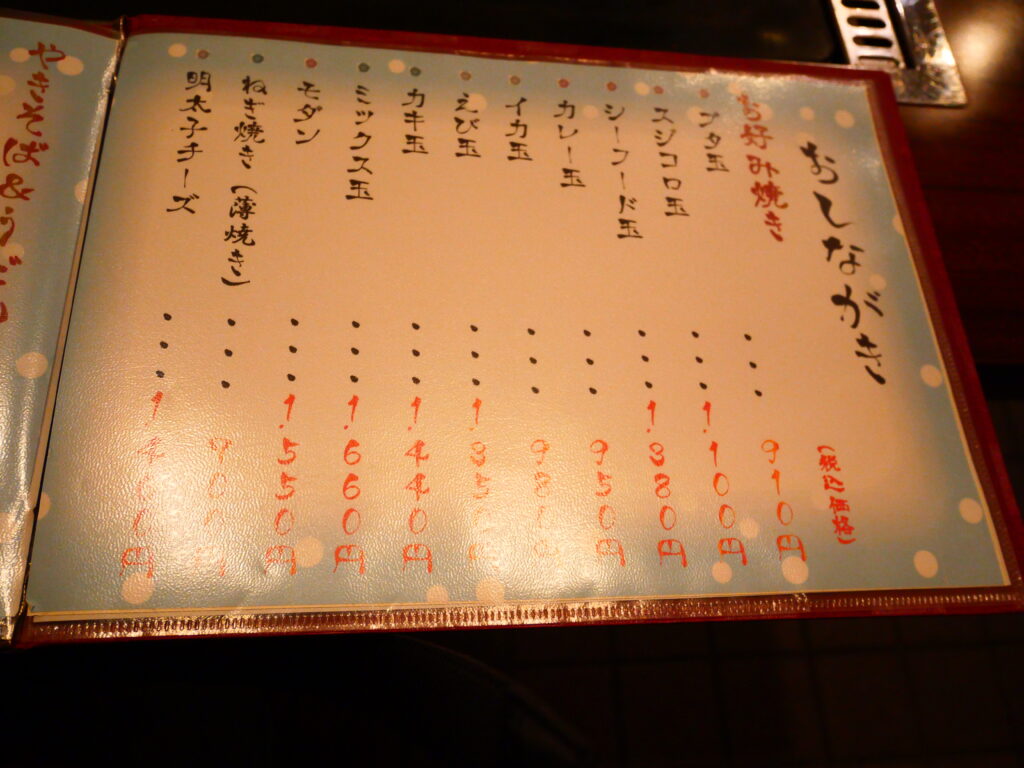 おしながき
(税込価格)
お好み焼き
ブタ玉・・・910円
スジコロ玉・・・1,100円
シーフード玉・・・1,380円
カレー玉・・・950円
イカ玉・・・
えび玉・・・
カキ玉・・・1,440円
ミックス玉・・・1,660円
モダン・・・1,550円
ねぎ焼き(薄焼き)・・・
明太子チーズ・・・
やきそば&うどん